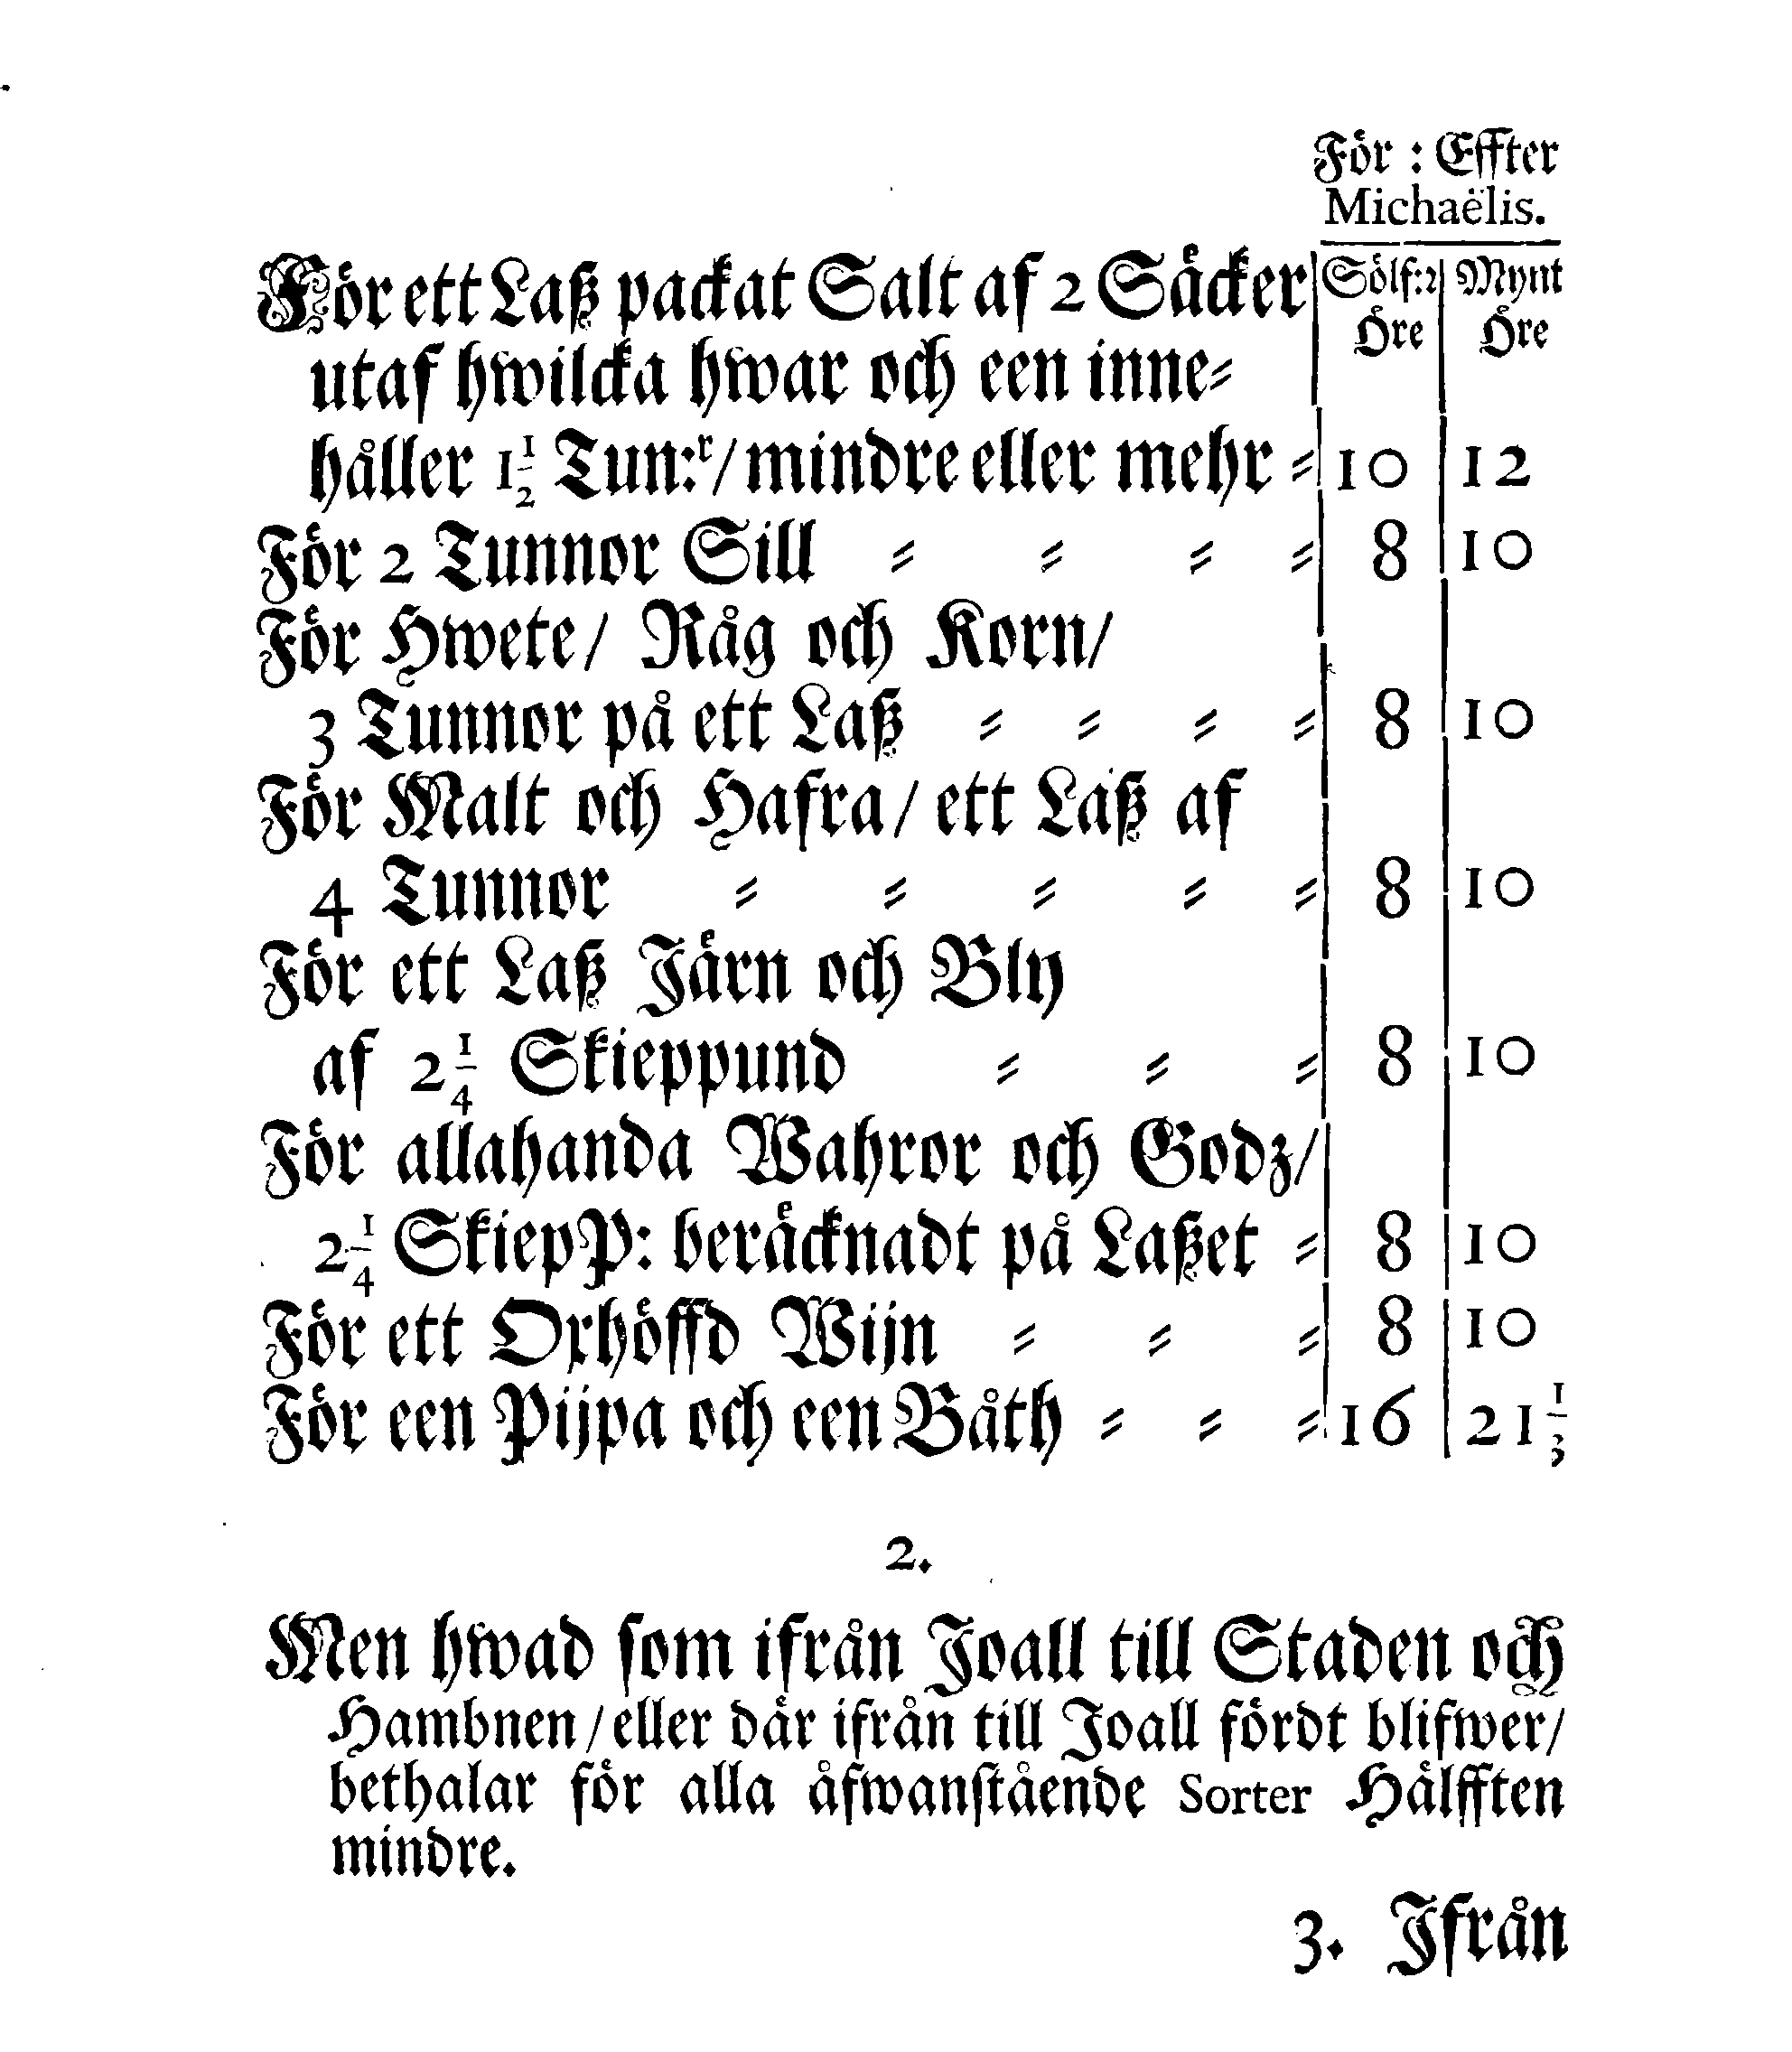 För : Effter
Michaëlis.
För ett Laß packat Salt af 2 Säcker Sölf:r Mynt
Öre Öre
utaf hwilcka hwar och een inne⸗
håller 1 1/2 Tun:r/ mindre eller mehr ⸗ 10 12
För 2 Tunnor Sill ⸗ ⸗ ⸗ ⸗ 8 10
För Hwete/ Råg och Korn/
3 Tunnor på ett Laß ⸗ ⸗ ⸗ ⸗ 8 10
För Malt och Hafra/ ett Laß af
4 Tunnor ⸗ ⸗ ⸗ ⸗ ⸗ 8 10
För ett Laß Järn och Bly
af 2 1/4 Skieppund ⸗ ⸗ ⸗ 8 10
För allahanda Wahror och Godz/
2 1/4 SkiepP: beräcknadt på Laßet ⸗ 8 10
För ett Oxhöffd Wijn ⸗ ⸗ ⸗ 8 10
För een Pijpa och een Båth ⸗ ⸗ ⸗ 16 21 1/3
2.
Men hwad som ifrån Joall till Staden och
Hambnen/ eller där ifrån till Joall fördt blifwer/
bethalar för alla åfwanstående Sorter Hälfften
mindre.
3. Ifrån